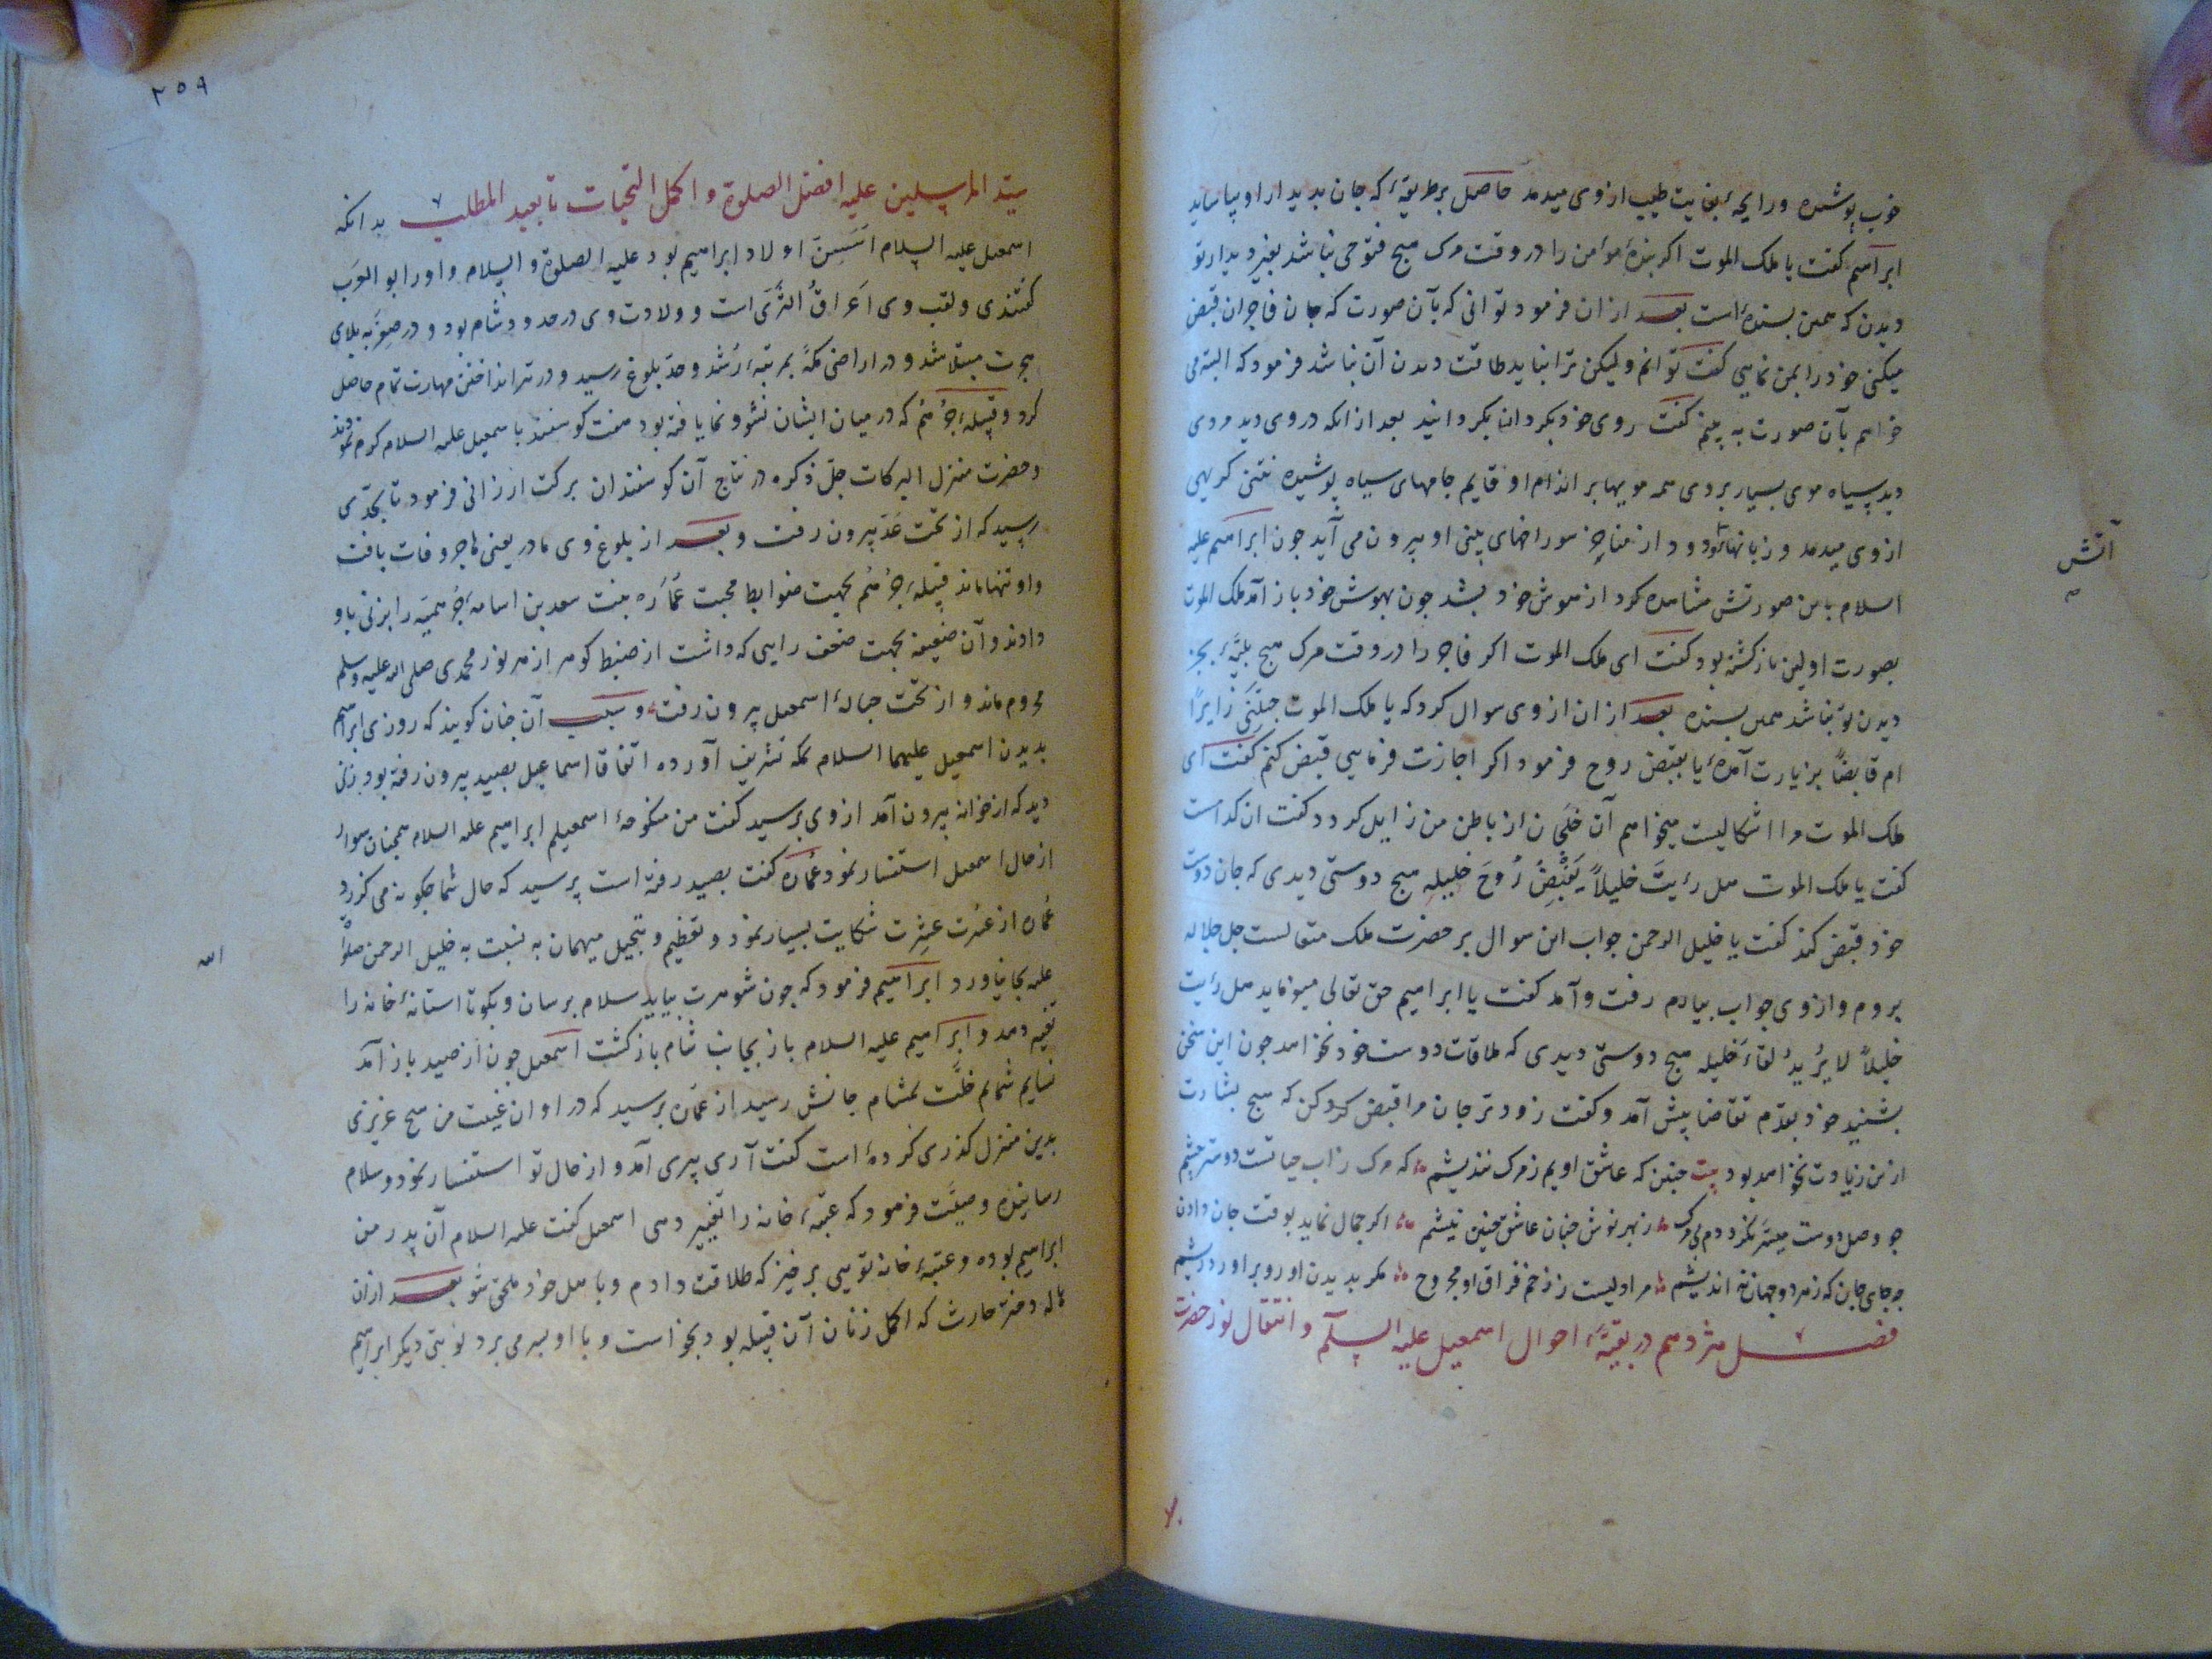 خوب پوشیده و رایحهٔ بغایت طیب از وی میدمد حاصل بر طریقهٔ که جان بدیدار او بیاساید
ابراهیم گفت یا ملک الموت اگر بندهٔ مؤمن را در وقت مرک هیچ فتوحی نباشد بغیر دیدار تو
دیدن که همین بسنده است بعد از ان فرمود توانی که بآن صورت که جان فاجران قبض
میکنی خود را بمن نمایی گفت توانم ولیکن ترا نباید طاقت دیدن آن نباشد فرمود که البته می
خواهم بآن صورت به بینم گفت روی خود بگردان بگردانید بعد از انکه در وی دید مردی
دید سیاه موی بسیار بر وی همه مویها بر اندام او قایم جامهای سیاه پوشیده نتنی کریهی
از وی میدمد و زبانها و دود از مناخر سوراخهای بینی او بیرون می آید جون ابراهیم علیه
السلام باین صورتش مشاهده کرد از هوش خود بشد جون بهوش خود باز آمد ملک الموت
بصورت اولین باز کشته بود گفت ای ملک الموت اگر فاجر را در وقت مرک هیچ بلیّهٔ بجز
دیدن تو نباشد همین بسنده بعد از ان از وی سوال کرد که یا ملک الموت جئتَنی زایرًا
ام قابضًا بزیارت آمدهٔ یا بقبض روح فرمود اگر اجازت فرمایی قبض کنم گفت ای
ملک الموت مرا اشکالیست میخواهم آن خلجان از باطن من زایل کردد گفت ان کدامست
گفت یا ملک الموت هل رأیتَ خلیلاً یَقْبِضُ رُوحَ خلیله هیچ دوستی دیدی که جان دوست
خود قبض کند گفت یا خلیل الرحمن جواب این سوال بر حضرت ملک متعالست جل جلاله
بروم و از وی جواب بیارم رفت و آمد گفت یا ابراهیم حق تعالی میفرماید هل رأیت
خلیلاً لا یُریدُ لقاءَ خلیله هیچ دوستی دیدی که ملاقات دوست خود نخواهد جون این سخن
بشنید خود بقدم تقاضا پیش آمد و گفت زودتر جان مرا قبض کردکن که هیچ بشارت
از من زیادت نخواهد بود بیت جنین که عاشق اویم ز مرک نندیشم که مرک ز آب حیاتست دوستر جشم
جو وصل دوست میسّر نکردم بی مرک ز زهر نوش جنان عاشق جنین نیشم اگر جمال نماید بوقت جان دادن
جه جای جان که ز هر دو جهان نه اندیشم مرا دلیست ز زخم فراق او مجروح مکر بدیدن او رو براورد ریشم
فصل هژدهم در بقیّهٔ احوال اسمعیل علیه السلم و انتقال نور حضرت
آتش
۲۵۹
سیّد المرسلین علیه افضل الصلوة و اکمل التحیات تا بعبد المطلب بدانکه
اسمعیل علیه السلام اَسَنِّ اولاد ابراهیم بود علیه الصلوة و السلام و اورا ابو العرب
گفتندی و لقب وی اَعراقُ الثَّرَی است و ولادت وی در حدود شام بود و در صِغَر به بلای
هجرت مبتلا شد و در اراضی مکّه بمرتبهٔ رشد و حدّ بلوغ رسید و در تیر انداختن مهارت تمام حاصل
کرد و قبیلهٔ جُرهُم که در میان ایشان نشو و نما یافته بود هفت کوسفند باسمعیل علیه السلام کرم نمودند
و حضرت منزل البرکات جلّ ذکره در نتاج آن کوسفندان برکت ارزانی فرمود تا بحدّی
رسید که از تحت عَدّ بیرون رفت و بعد از بلوغ وی مادر یعنی هاجر وفات یافت
و او تنها ماند قبیلهٔ جُرهُم بجهت ضوابط محبت عُمّاره بنت سعد بن اسامهٔ جُرهمیّه را بزنی باو
دادند و آن ضعیفه بجهت ضعف رایی که داشت از ضبط کوهر از هر نور محمدی صلی الله علیه وسلم
محروم ماند و از تحت حبالهٔ اسمعیل بیرون رفت و سبب آن جنان گویند که روزی ابراهیم
بدیدن اسمعیل علیهما السلام بمکه تشریف آورده اتفاقا اسماعیل بصید بیرون رفته بود زنی
دید که از خانه بیرون آمد از وی پرسید گفت من منکوحهٔ اسمعیلم ابراهیم علیه السلام همچنان سوار
از حال اسمعیل استفسار نمود عُماره گفت بصید رفته است پرسید که حال شما جکونه می گذرد
عُماره از عُسْرت عِشْرت شکایت بسیار نمود و تعظیم و تبجیل میهمان به نسبت به خلیل الرحمن صلوات
الله
علیه بجا نیاورد ابراهیم فرمود که جون شوهرت بیاید سلام برسان و بکو تا استانهٔ خانه را
تغییر دهد و ابراهیم علیه السلام باز بجانب شام باز کشت اسمعیل جون از صید باز آمد
نسایم شمایم خلّت بمشام جانش رسید از عُماره پرسید که در اوان غیبت من هیچ عزیزی
بدین منزل گذری کرده است گفت آری پیری آمد و از حال تو استفسار نمود و سلام
رسانیده وصیّت فرمود که عتبهٔ خانه را تغییر دهی اسمعیل گفت علیه السلام آن پدر من
ابراهیم بوده و عتبهٔ خانه تویی برخیز که طلاقت دادم و باهل خود ملحق شو بعد از ان
هاله دختر حارث که اکمل زنان آن قبیله بود بخواست و با او بسر می برد نوبتی دیکر ابراهیم